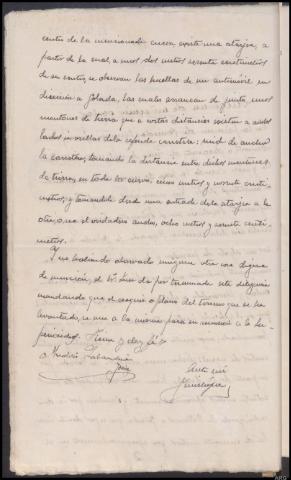 centro de la mencionada curva existe una atarjea, a
partir de la cual, a unos dos metros sesenta centimetros
de su centro, se observan las huellas de un automóvil en
dirección a Golada, las cuales arrancan de junto unos
montones de tierra que a cortas distancias existen a ambos
lados u orillas de la referida carretera; mide de ancho
la carretera, tomando la distancia entre dichos montones
de tierra, en toda la curva, cinco metros y sesenta centi-
metros; y tomándola desde una entrada de la atarjea a la
otra, o sea el verdadero ancho, ocho metros y sesenta centi-
metros.
Y no habiendo observado ninguna otra cosa digna
de mención, el Sr. Juez da por terminada esta diligencia
mandando que el croquis o plano del terreno que se ha
levantado, se una a la misma para su remisión a la Su-
perioridad. Firma y doy fé.
Ante mí